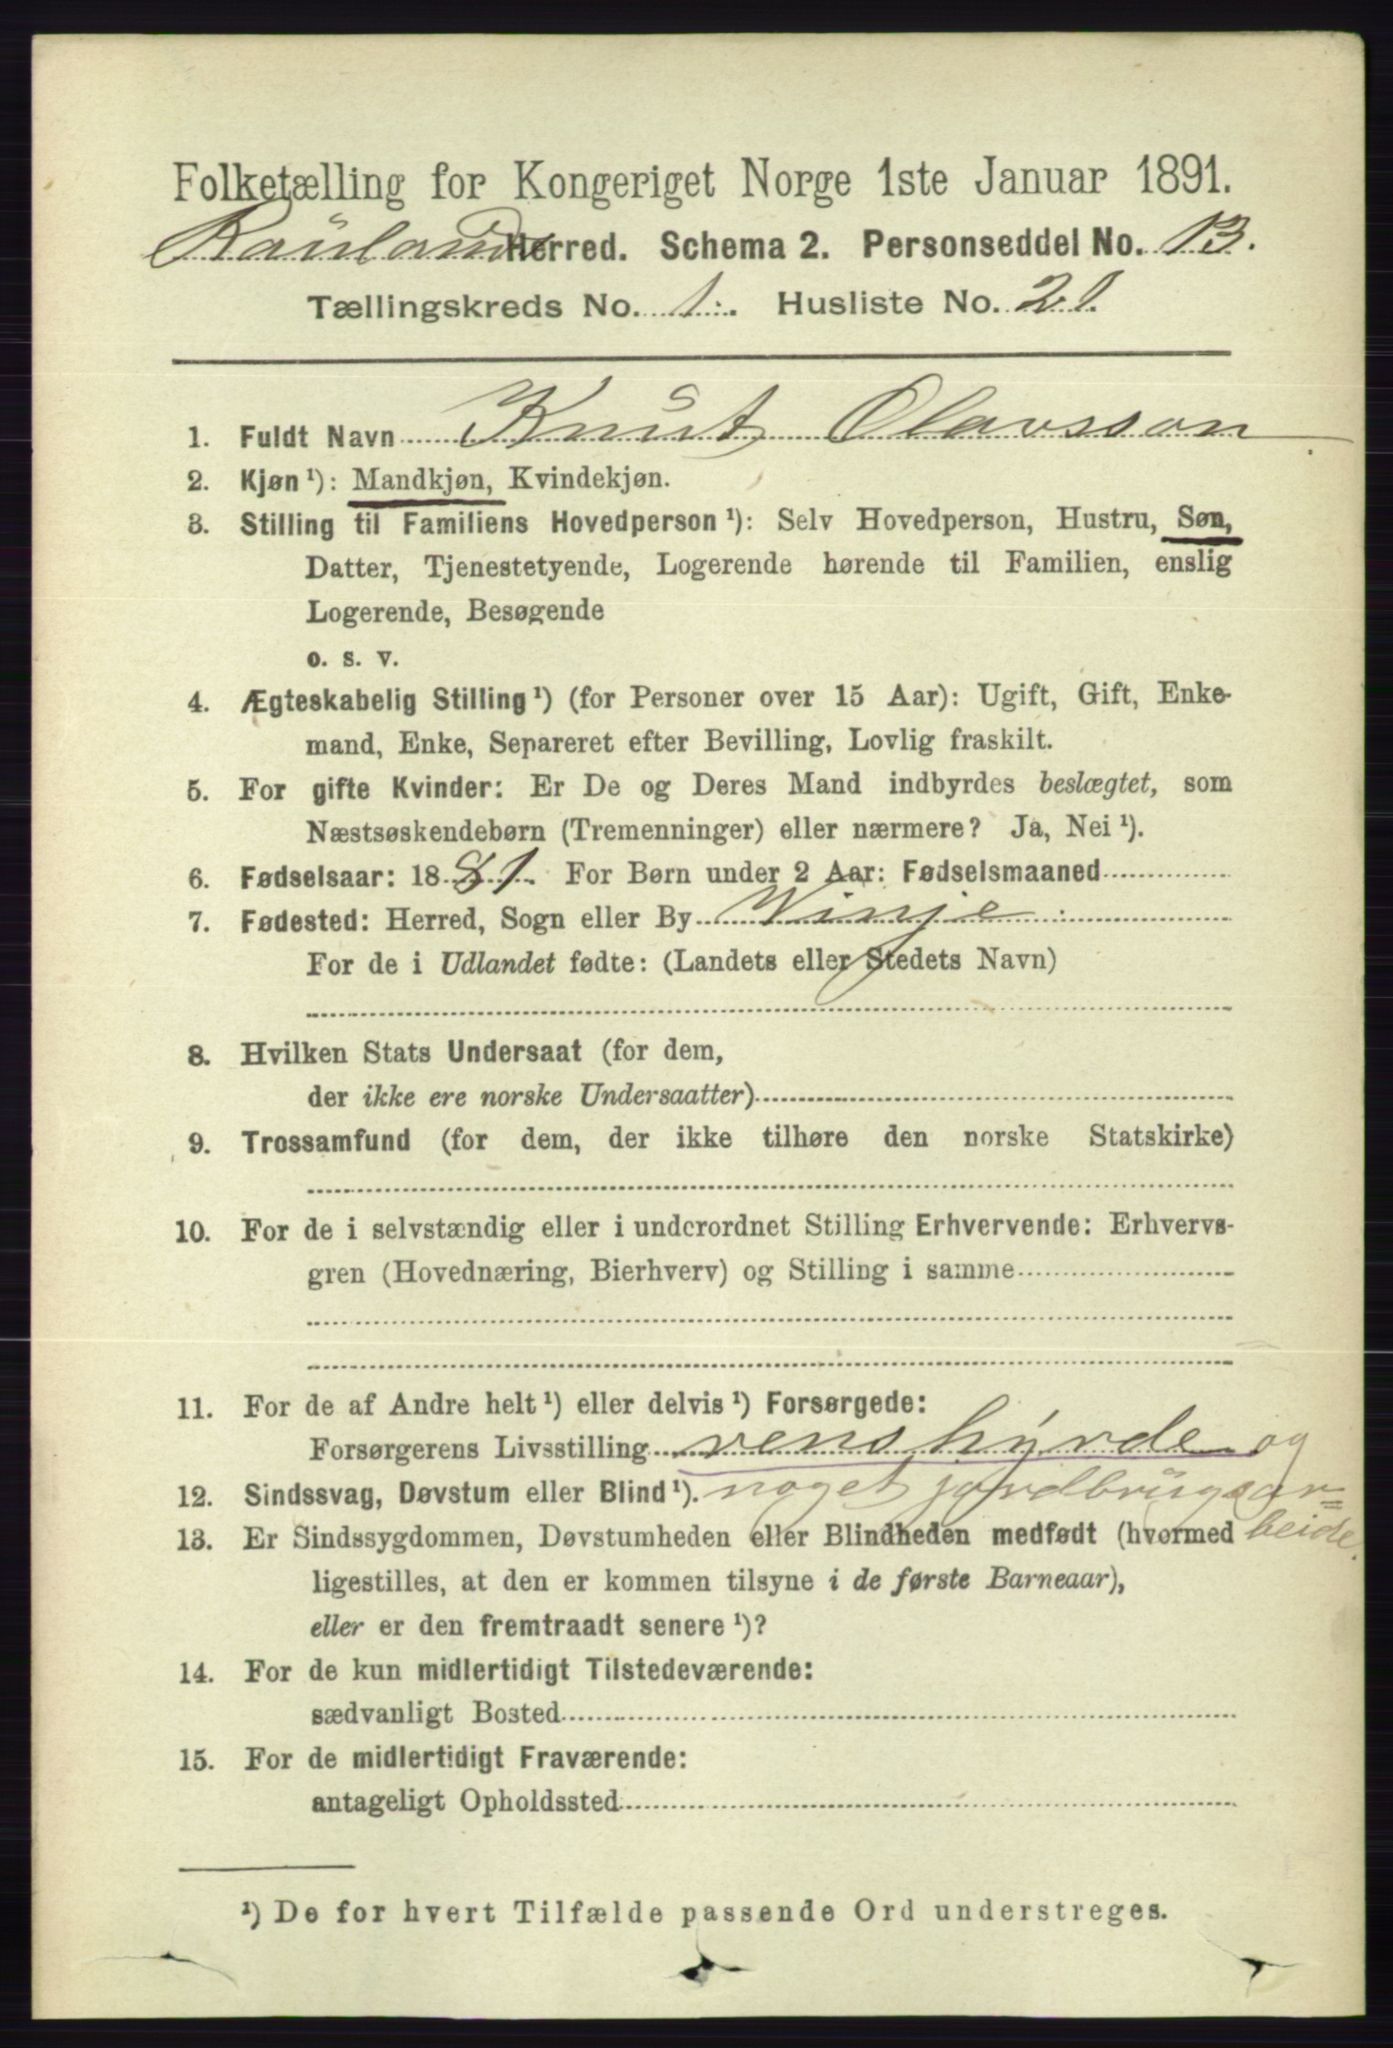 Folketælling for Kongeriget Norge 1ste Januar 1891.
Raulands Herred. Schema 2. Personseddel No. 13.
Tællingskreds No. 1. Husliste No. 21.
1. Fuldt Navn Knut Olavsson
2. Kjøn ¹): Mandkjøn, Kvindekjøn.
3. Stilling til Familiens Hovedperson ¹): Selv Hovedperson, Hustru, Søn,
Datter, Tjenestetyende, Logerende hørende til Familien, enslig
Logerende, Besøgende
o. s. v.
4. Ægteskabelig Stilling ¹) (for Personer over 15 Aar): Ugift, Gift, Enke-
mand, Enke, Separeret efter Bevilling, Lovlig fraskilt.
5. For gifte Kvinder: Er De og Deres Mand indbyrdes beslægtet, som
Næstsøskendebørn (Tremenninger) eller nærmere? Ja, Nei ¹).
6. Fødselsaar: 1881. For Børn under 2 Aar: Fødselsmaaned
7. Fødested: Herred, Sogn eller By Vinje
For de i Udlandet fødte: (Landets eller Stedets Navn)
8. Hvilken Stats Undersaat (for dem,
der ikke ere norske Undersaatter)
9. Trossamfund (for dem, der ikke tilhøre den norske Statskirke)
10. For de i selvstændig eller i underordnet Stilling Erhvervende: Erhvervs-
gren (Hovednæring, Bierhverv) og Stilling i samme
11. For de af Andre helt ¹) eller delvis ¹) Forsørgede:
Forsørgerens Livsstilling renshyrde og
12. Sindssvag, Døvstum eller Blind ¹). noget jordbrugsar=
13. Er Sindssygdommen, Døvstumheden eller Blindheden medfødt (hvormed beide.
ligestilles, at den er kommen tilsyne i de første Barneaar),
eller er den fremtraadt senere ¹)?
14. For de kun midlertidigt Tilstedeværende:
sædvanligt Bosted
15. For de midlertidigt Fraværende:
antageligt Opholdssted
¹) De for hvert Tilfælde passende Ord understreges.